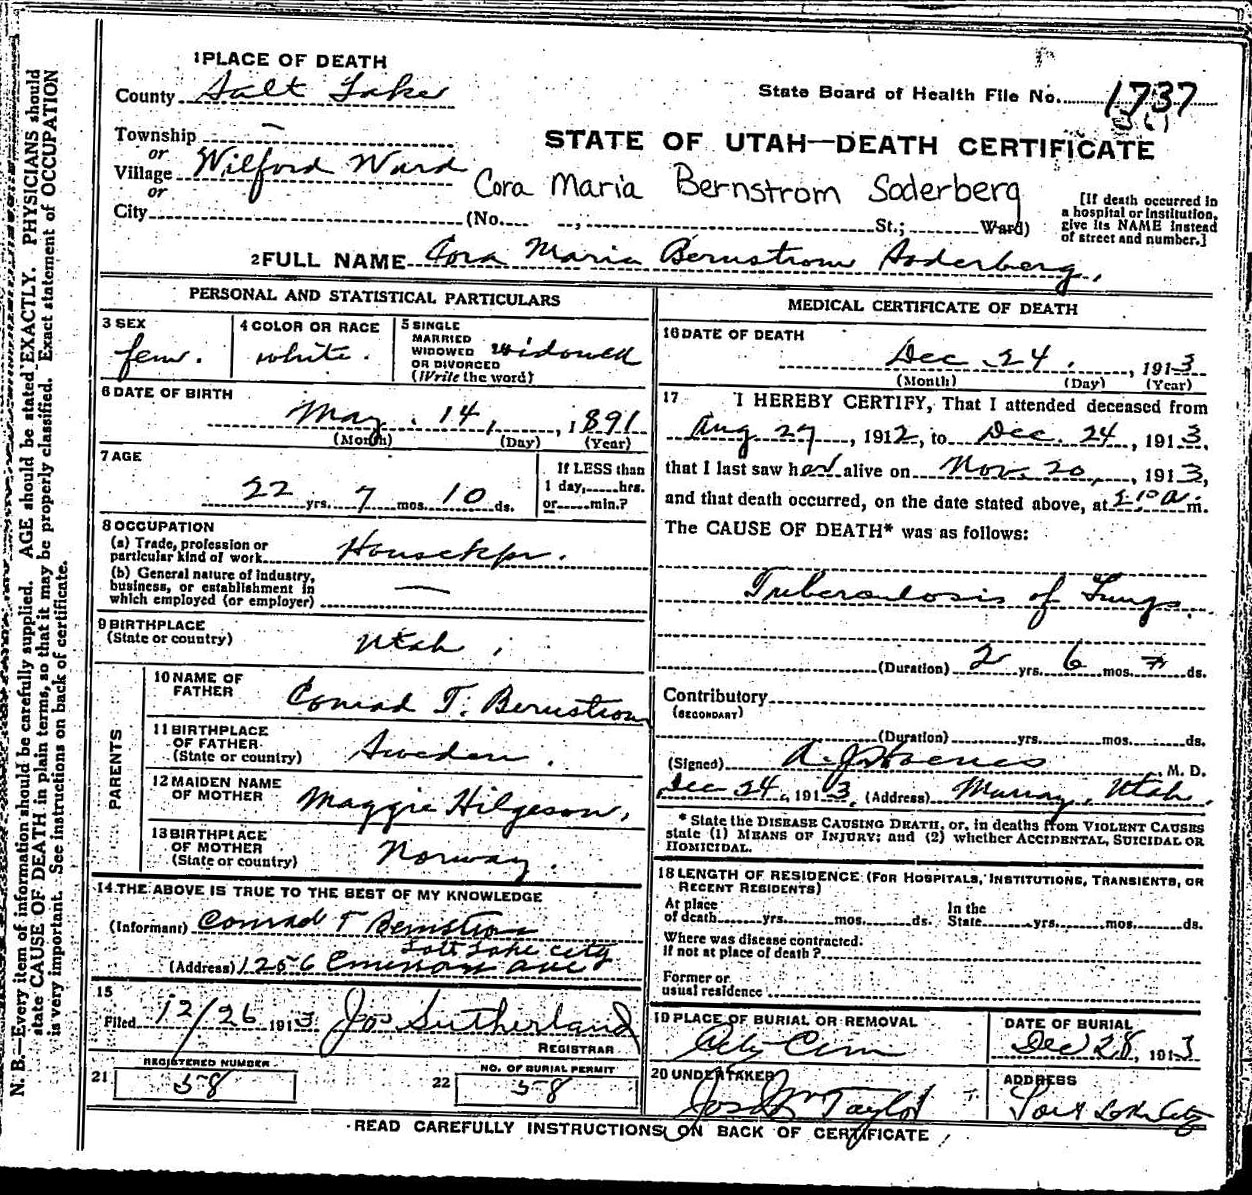 1 PLACE OF DEATH
County Salt Lake
State Board of Health File No. 1737
Township —
or
Village Wilford Ward
or
STATE OF UTAH—DEATH CERTIFICATE
Cora Maria Bernstrom Soderberg
City (No. , St.; Ward)
[If death occurred in
a hospital or institution,
give its NAME instead
of street and number.]
2 FULL NAME Cora Maria Bernstrom Soderberg.
PERSONAL AND STATISTICAL PARTICULARS
3 SEX
fem.
4 COLOR OR RACE
white.
5 SINGLE
MARRIED
WIDOWED
OR DIVORCED
(Write the word)
widowed
6 DATE OF BIRTH
May. 14, , 1891
(Month) (Day) (Year)
7 AGE
22 yrs. 7 mos. 10 ds.
If LESS than
1 day, hrs.
or min.?
8 OCCUPATION
(a) Trade, profession or
particular kind of work Housekpr.
(b) General nature of industry,
business, or establishment in
which employed (or employer) —
9 BIRTHPLACE
(State or country) Utah.
PARENTS
10 NAME OF
FATHER Conrad T. Bernstrom
11 BIRTHPLACE
OF FATHER
(State or country) Sweden.
12 MAIDEN NAME
OF MOTHER Maggie Hilgeson.
13 BIRTHPLACE
OF MOTHER
(State or country) Norway.
14 THE ABOVE IS TRUE TO THE BEST OF MY KNOWLEDGE
(Informant) Conrad T Bernstrom
Salt Lake City
(Address) 1256 Emerson Ave
15
Filed 12/26 1913 Jos Sutherland
REGISTRAR
REGISTERED NUMBER
21 58
NO. OF BURIAL PERMIT
22 58
MEDICAL CERTIFICATE OF DEATH
16 DATE OF DEATH
Dec 24. , 1913
(Month) (Day) (Year)
17 I HEREBY CERTIFY, That I attended deceased from
Aug 27 , 1912, to Dec. 24 , 1913,
that I last saw her alive on Nov. 20, , 1913,
and that death occurred, on the date stated above, at a m.
The CAUSE OF DEATH* was as follows:
Tuberculosis of Lungs.
(Duration) 2 yrs. 6 mos. ds.
Contributory
(SECONDARY)
(Duration) yrs. mos. ds.
(Signed) A. J. M. D.
Dec 24, 1913, (Address) Murray, Utah.
* State the DISEASE CAUSING DEATH, or, in deaths from VIOLENT CAUSES
state (1) MEANS OF INJURY; and (2) whether ACCIDENTAL, SUICIDAL OR
HOMICIDAL.
18 LENGTH OF RESIDENCE (FOR HOSPITALS, INSTITUTIONS, TRANSIENTS, OR
RECENT RESIDENTS)
At place
of death yrs. mos. ds.
In the
State yrs. mos. ds.
Where was disease contracted
if not at place of death?
Former or
usual residence
19 PLACE OF BURIAL OR REMOVAL
City Cem
DATE OF BURIAL
Dec 28, 1913
20 UNDERTAKER
Jos Wm Taylor
ADDRESS
Salt Lake City
READ CAREFULLY INSTRUCTIONS ON BACK OF CERTIFICATE
N. B.—Every item of information should be carefully supplied. AGE should be stated EXACTLY. PHYSICIANS should
state CAUSE OF DEATH in plain terms, so that it may be properly classified. Exact statement of OCCUPATION
is very important. See instructions on back of certificate.